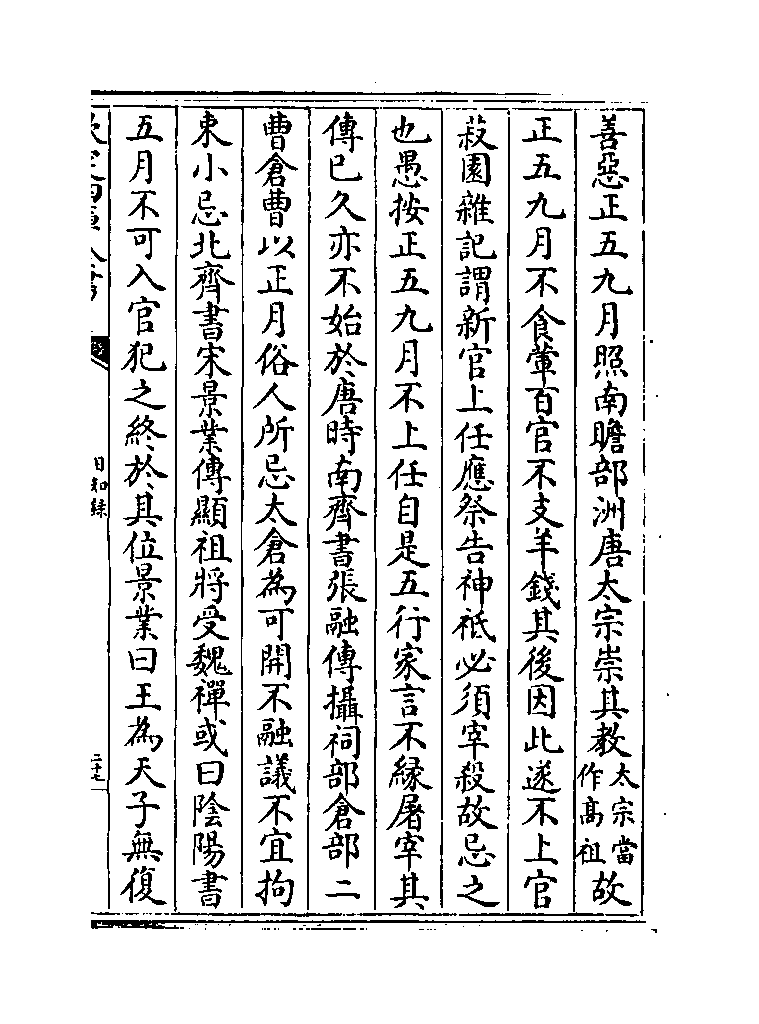 善惡正五九月照南瞻部洲唐太宗崇其教太宗當作高祖故
正五九月不食葷百官不支羊錢其後因此遂不上官
菽園雜記謂新官上任應祭告神祗必須宰殺故忌之
也愚按正五九月不上任自是五行家言不緣屠宰其
傳已久亦不始於唐時南齊書張融傳攝祠部倉部二
曹倉曹以正月俗人所忌太倉為可開不融議不宜拘
束小忌北齊書宋景業傳顯祖將受魏禪或曰陰陽書
五月不可入官犯之終於其位景業曰王為天子無復
日知錄